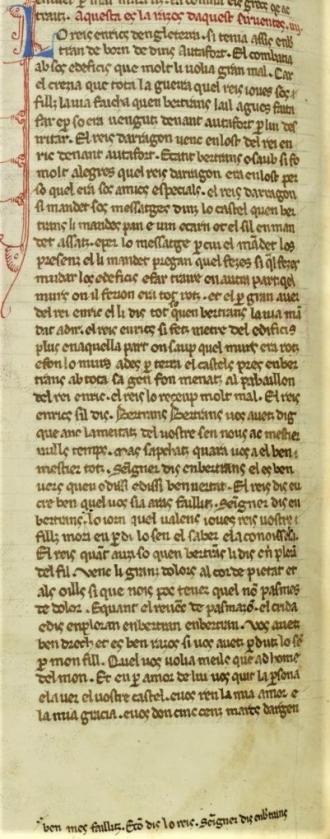 trair. Aquesta es la razos daquest siruentes.
Lo reis enrics dengleterra. si tenia assis enb
tran de born de dinz autafort. El combatia
ab sos edeficis que molt li uolia gran mal. Car
el crezia que tota la guerra quel reis ioues sos
fill; laiua faicha quen bertrans lail agues faita
far ep so era uengutz denant autafort p lui des
iritar. El reis darragon uenc en lost del rei en
ric denant autafort. Et ant bertrans o saub si fo
molt alegres quel reis darragon era en lost per
so quel era sos amics especials. el reis darragon
si mandet sos messatges dinz lo castel quen ber
trans li mandes pan e uin e carn et el sil en man
det assatz. e per lo messatge p cui el mandet los
presenz el li mandet pregan quel fezes si qil fezes
mudar los edeficis e far traire en autra part. qel
murs on il ferion era totz rotz. et el p gran auer
del rei enric el li dis tot so quen bertrans laiua man
dat adir. el reis enrics si fetz metre dels edificis
plus en aquella part on saup quel murs era rotz
e fon lo murs ades p terra el castels pres en ber
trans ab tota sa gen fon menatz al pabaillon
del rei enric. el reis lo receup molt mal. El reis
enrics sil dis. Bertrans bertrans uos auetz dig
que anc la meitatz del uostre sen nous ac mestier
nulls temps. mas sapchatz quara uos a el ben
mestier totz. Seingner dis en bertrans el es ben
uers quen o dissi e dissi ben uertat. El reis dis eu
cre ben quel uos sia aras faillitz. Seingner dis en
bertrans. lo iorn quel ualens ioues reis uostre
fill; mori eu pdi lo sen el saber e la conoissensa.
El reis quant auzi so quen bertrans li dis en plorā
del fill. Venc li granz dolors al cor de pietat et
als oills si que nois poc tener quel non pasmes
de dolor. E quant el reuenc de pasmazon. el crida
e dis en ploran en bertran en bertran. Vos auetz
ben droch et es ben razos si uos auetz pdut lo sē
p mon fill. Quel uos uolia meils que ad home
del mon. Et eu p amor de lui uos quit la psona
e lauer el uostre castel. e uos ren la mia amor e
la mia gracia. e uos don cinc cenz marcs dargen
ben mes faillitz. Eco dis lo reis. Seingner dis en bertrans